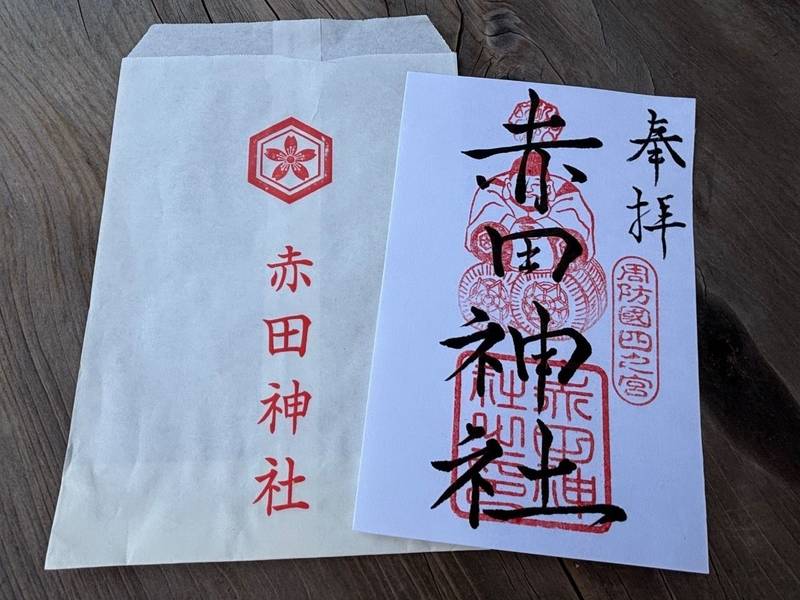 赤田神社
奉拝
周防國四之宮
赤田神社